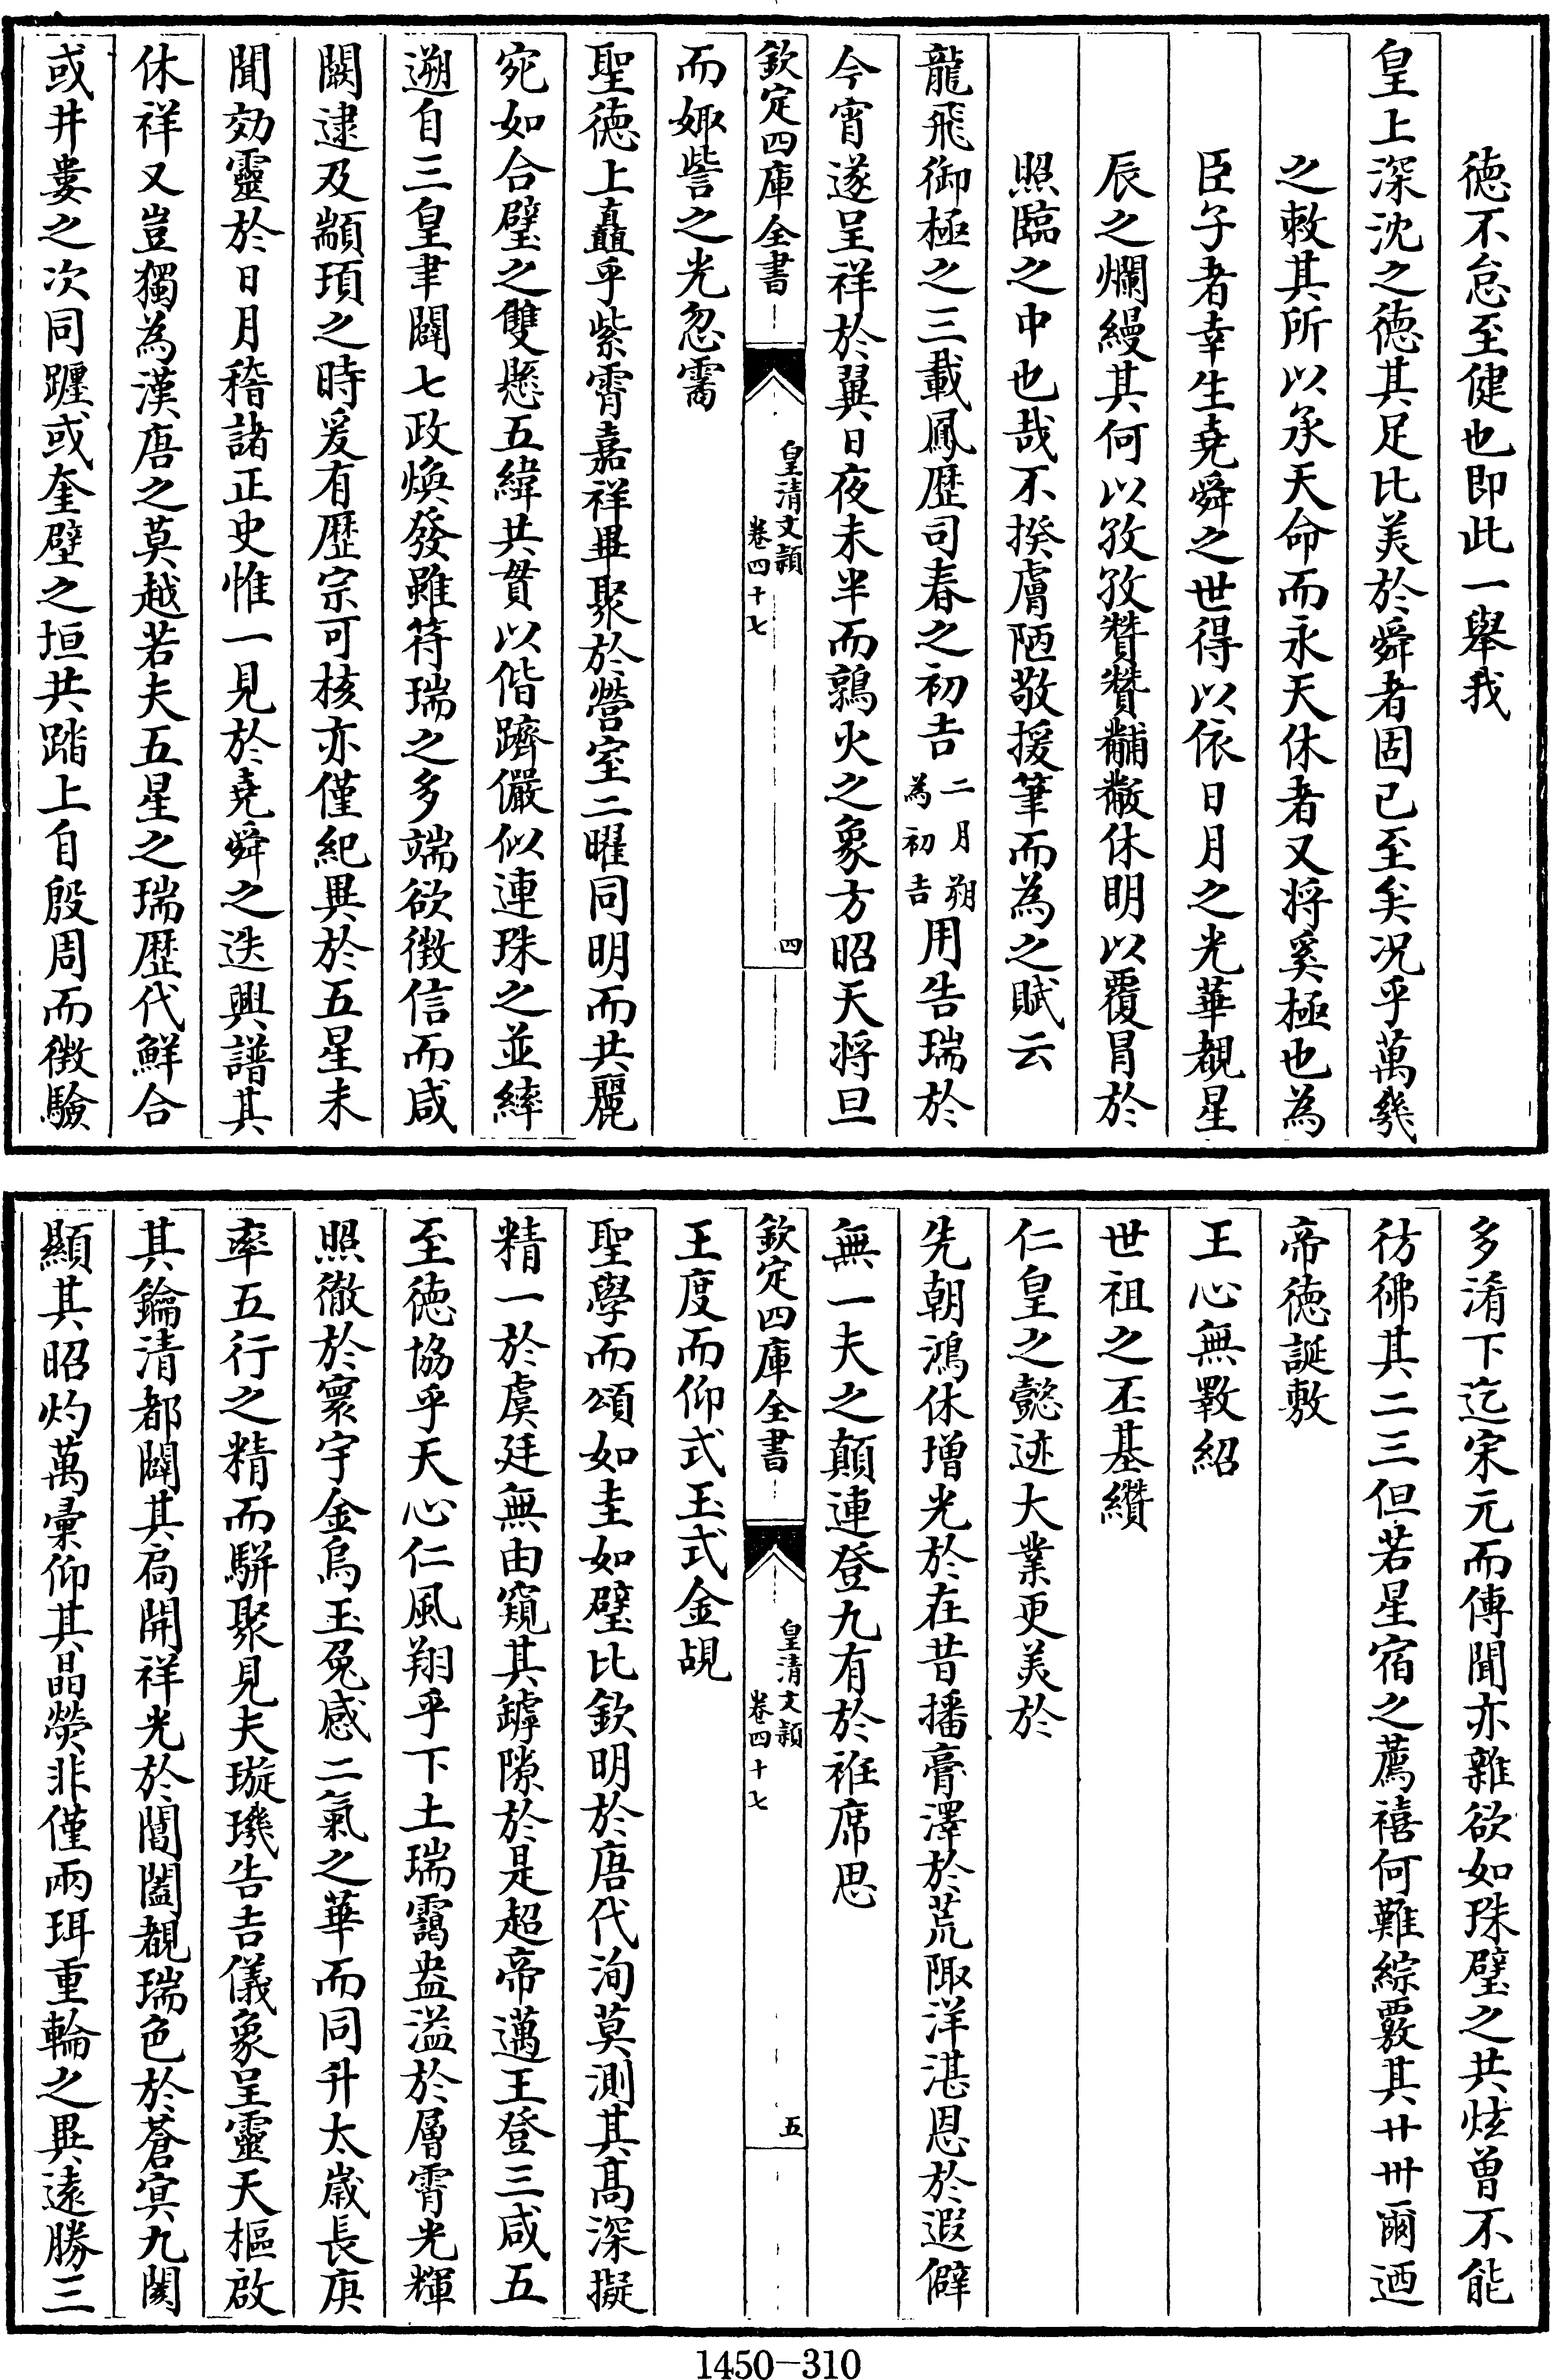 德不怠至健也即此一舉我
皇上深沈之德其足比美於舜者固已至矣况乎萬幾
之敕其所以承天命而永天休者又将奚極也為
臣子者幸生堯舜之世得以依日月之光華覩星
辰之爛縵其何以孜孜贊贊黼黻休明以覆冒於
照臨之中也哉不揆膚陋敬援筆而為之賦云
龍飛御極之三載鳳歴司春之初吉二月朔為初吉用告瑞於
今宵遂呈祥於翼日夜未半而鶉火之象方昭天将旦
而娵訾之光忽霱
聖德上矗乎紫霄嘉祥畢聚於營室二曜同明而共麗
宛如合璧之雙懸五緯共貫以偕躋儼似連珠之並繂
遡自三皇聿闢七政煥發雖符瑞之多端欲徴信而咸
闕逮及顓頊之時爰有歴宗可核亦僅紀異於五星未
聞効靈於日月稽諸正史惟一見於堯舜之迭興譜其
休祥又豈獨為漢唐之莫越若夫五星之瑞歴代鮮合
或井婁之次同躔或奎壁之垣共踏上自殷周而徴驗
欽定四庫全書
皇清文頴
卷四十七
四
多淆下迄宋元而傳聞亦雜欲如珠璧之共炫曽不能
彷彿其二三但若星宿之薦禧何難綜覈其廿卅爾迺
帝德誕敷
王心無斁紹
世祖之丕基纘
仁皇之懿迹大業更美於
先朝鴻休增光於在昔播膏澤於荒陬洋湛恩於遐僻
無一夫之顛連登九有於袵席思
王度而仰式玉式金覘
聖學而頌如圭如璧比欽明於唐代洵莫測其髙深擬
精一於虞廷無由窺其罅隙於是超帝邁王登三咸五
至德協乎天心仁風翔乎下土瑞靄盎溢於層霄光輝
照徹於寰宇金烏玉兔感二氣之華而同升太歲長庚
率五行之精而駢聚見夫璇璣告吉儀象呈靈天樞啟
其鑰清都闢其扃開祥光於閶闔覩瑞色於蒼冥九闕
顯其昭灼萬彙仰其晶熒非僅兩珥重輪之異遠勝三
欽定四庫全書
皇清文頴
卷四十七
五
1450-310